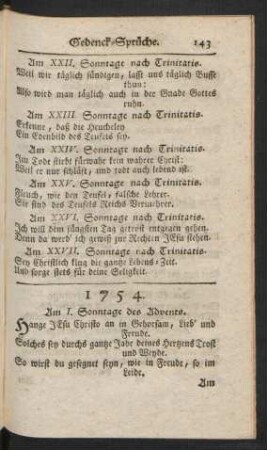 Gedenck-Sprüche. 143
Am XXII. Sonntage nach Trinitatis.
Weil wir täglich sündigen, lasst uns täglich Busse
thun:
Also wird man täglich auch in der Gnade Gottes
ruhn.
Am XXIII. Sonntage nach Trinitatis.
Erkenne, daß die Heucheley
Ein Ebenbild des Teufels sey.
Am XXIV. Sonntage nach Trinitatis.
Im Tode stirbt fürwahr kein wahrer Christ:
Weil er nur schläft, und todt auch lebend ist.
Am XXV. Sonntage nach Trinitatis.
Fleuch, wie den Teufel, falsche Lehrer.
Sie sind des Teufels Reichs Vermehrer.
Am XXVI. Sonntage nach Trinitatis.
Ich will dem jüngsten Tag getrost entgegen gehen.
Denn da werd' ich gewiß zur Rechten JEsu stehen.
Am XXVII. Sonntage nach Trinitatis.
Sey Christlich klug die gantze Lebens-Zeit.
Und sorge stets für deine Seligkeit.
1754.
Am I. Sonntage des Advents.
Hange JEsu Christo an in Gehorsam, Lieb' und
Freude.
Solches sey durchs gantze Jahr deines Hertzens Trost
und Weyde.
So wirst du gesegnet seyn, wie in Freude, so im
Leide.
Am